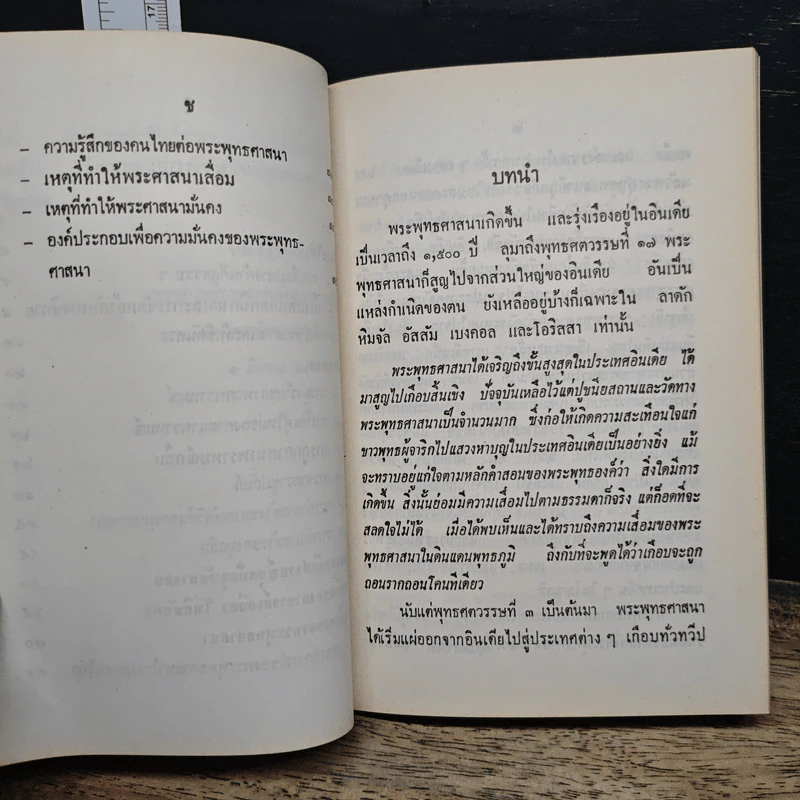 17
ช
– ความรู้สึกของคนไทยต่อพระพุทธศาสนา
– เหตุที่ทำให้พระศาสนาเสื่อม
– เหตุที่ทำให้พระศาสนามั่นคง
– องค์ประกอบเพื่อความมั่นคงของพระพุทธ-
ศาสนา
บทนำ
พระพุทธศาสนาเกิดขึ้น และรุ่งเรืองอยู่ในอินเดีย
เป็นเวลาถึง ๑,๕๐๐ ปี ลุมาถึงพุทธศตวรรษที่ ๑๗ พระ
พุทธศาสนาก็สูญไปจากส่วนใหญ่ของอินเดีย อันเป็น
แหล่งกำเนิดของตน ยังเหลืออยู่บ้างก็เฉพาะใน ลาดัก
หิมจัล อัสสัม เบงคอล และโอริสสา เท่านั้น
พระพุทธศาสนาได้เจริญถึงขั้นสูงสุดในประเทศอินเดีย ได้
มาสูญไปเกือบสิ้นเชิง ปัจจุบันเหลือไว้แต่ปูชนียสถานและวัดทาง
พระพุทธศาสนาเป็นจำนวนมาก ซึ่งก่อให้เกิดความสะเทือนใจแก่
ชาวพุทธผู้จาริกไปแสวงหาบุญในประเทศอินเดียเป็นอย่างยิ่ง แม้
จะทราบอยู่แก่ใจตามหลักคำสอนของพระพุทธองค์ว่า สิ่งใดมีการ
เกิดขึ้น สิ่งนั้นย่อมมีความเสื่อมไปตามธรรมดาก็จริง แต่ก็อดที่จะ
สลดใจไม่ได้ เมื่อได้พบเห็นและได้ทราบถึงความเสื่อมของพระ
พุทธศาสนาในดินแดนพุทธภูมิ ถึงกับที่จะพูดได้ว่าเกือบจะถูก
ถอนรากถอนโคนทีเดียว
นับแต่พุทธศตวรรษที่ ๓ เป็นต้นมา พระพุทธศาสนา
ได้เริ่มแผ่ออกจากอินเดียไปสู่ประเทศต่าง ๆ เกือบทั่วทวีป